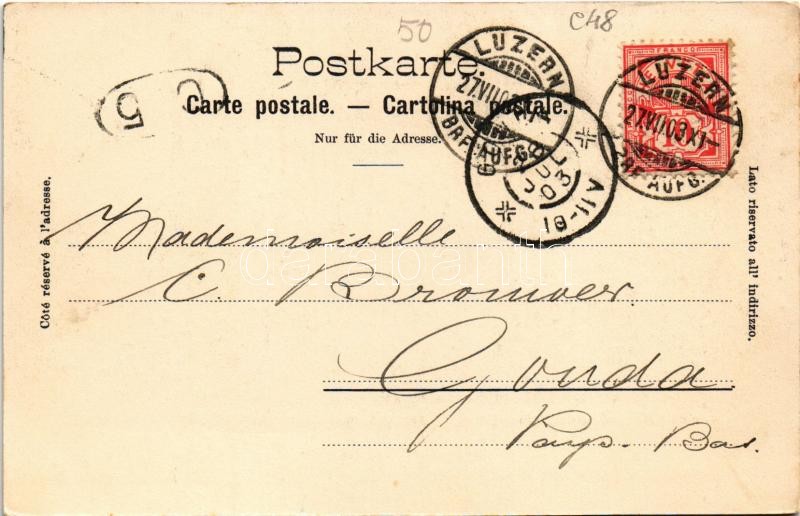 50
C48
Postkarte
Carte postale. — Cartolina postale.
Nur für die Adresse.
LUZERN
27.VII.03
BRF. AUFG.
LUZERN
27.VII.03.XI
BRF. AUFG.
FRANCO
JUL
03
5
Côté réservé à l'adresse.
Lato riservato all' indirizzo.
Mademoiselle
C. Bromver.
Gouda
Pays-Bas.